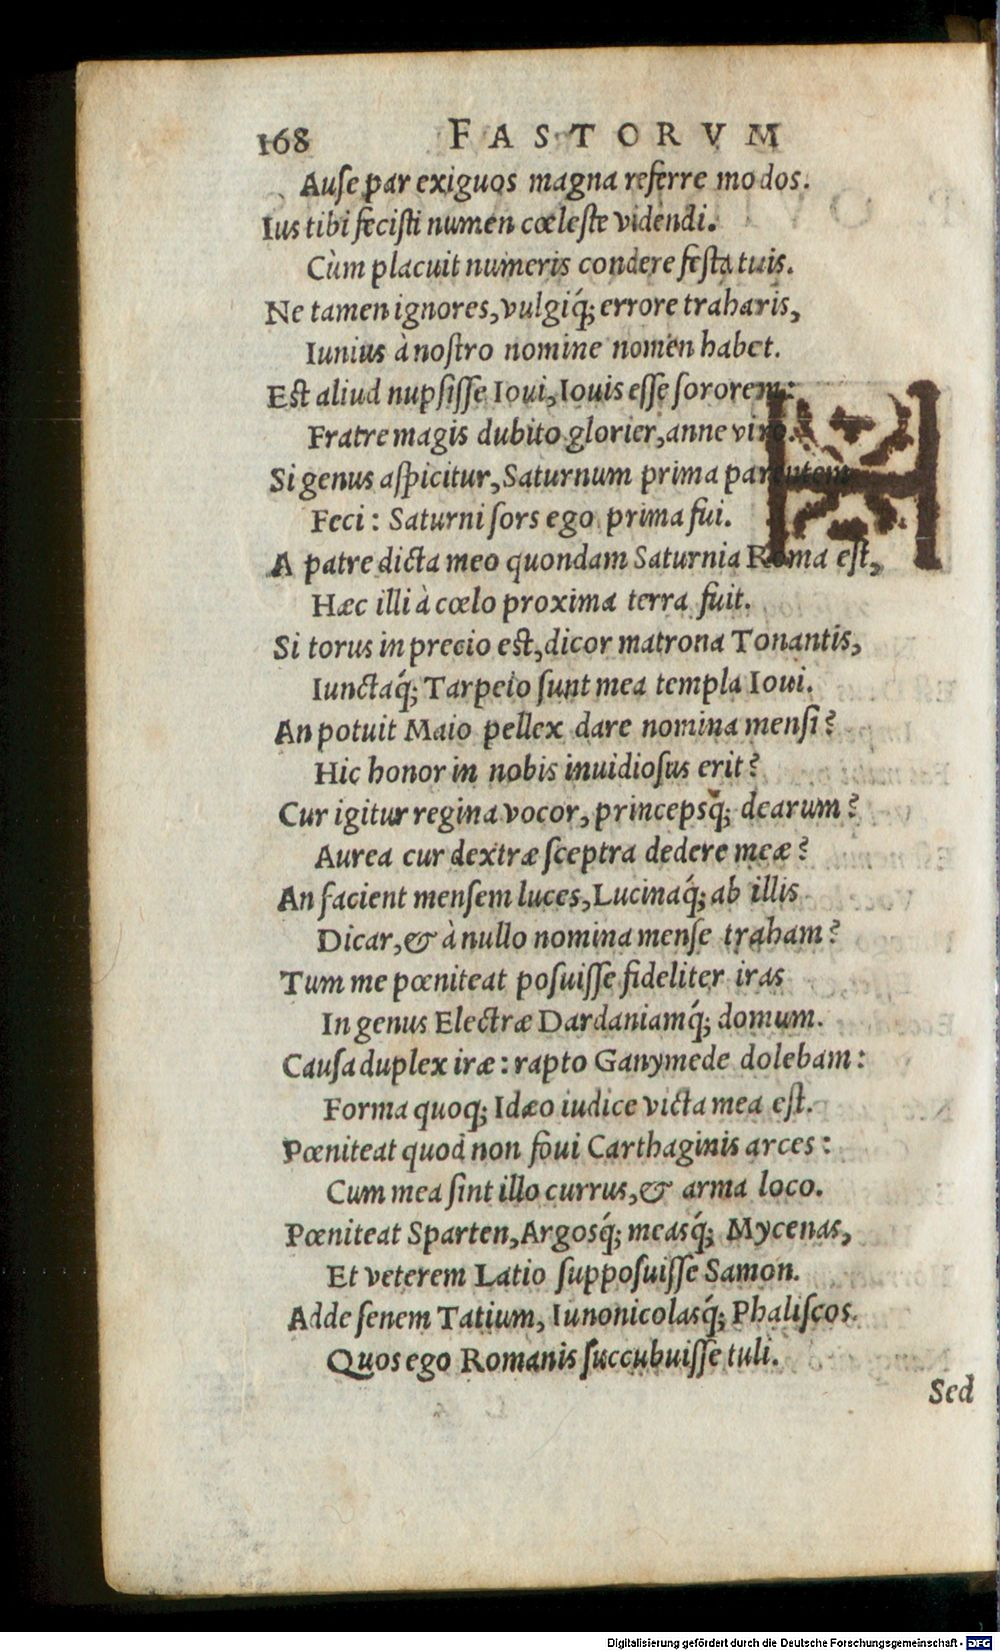 168 FASTORVM
Auſe par exiguos magna referre modos.
Ius tibi feciſti numen cœleſte videndi.
Cùm placuit numeris condere feſta tuis.
Ne tamen ignores, vulgiq́; errore traharis,
Iunius à noſtro nomine nomen habet.
Eſt aliud nupſiſſe Ioui, Iouis eſſe ſororem:
Fratre magis dubito glorier, anne viro.
Si genus aſpicitur, Saturnum prima parentem
Feci: Saturni ſors ego prima fui.
A patre dicta meo quondam Saturnia Roma eſt,
Hæc illi à cœlo proxima terra fuit.
Si torus in precio eſt, dicor matrona Tonantis,
Iunctaq́; Tarpeio ſunt mea templa Ioui.
An potuit Maio pellex dare nomina menſi?
Hic honor in nobis inuidioſus erit?
Cur igitur regina vocor, princepsq́; dearum?
Aurea cur dextræ ſceptra dedere meæ?
An facient menſem luces, Lucinaq́; ab illis
Dicar, & à nullo nomina menſe traham?
Tum me pœniteat poſuiſſe fideliter iras
In genus Electræ Dardaniamq́; domum.
Cauſa duplex iræ: rapto Ganymede dolebam:
Forma quoq; Idæo iudice victa mea eſt.
Pœniteat quod non foui Carthaginis arces:
Cum mea ſint illo currus, & arma loco.
Pœniteat Sparten, Argosq́; measq́; Mycenas,
Et veterem Latio ſuppoſuiſſe Samon.
Adde ſenem Tatium, Iunonicolasq́; Phaliſcos.
Quos ego Romanis ſuccubuiſſe tuli.
Sed
Digitalisierung gefördert durch die Deutsche Forschungsgemeinschaft - DFG